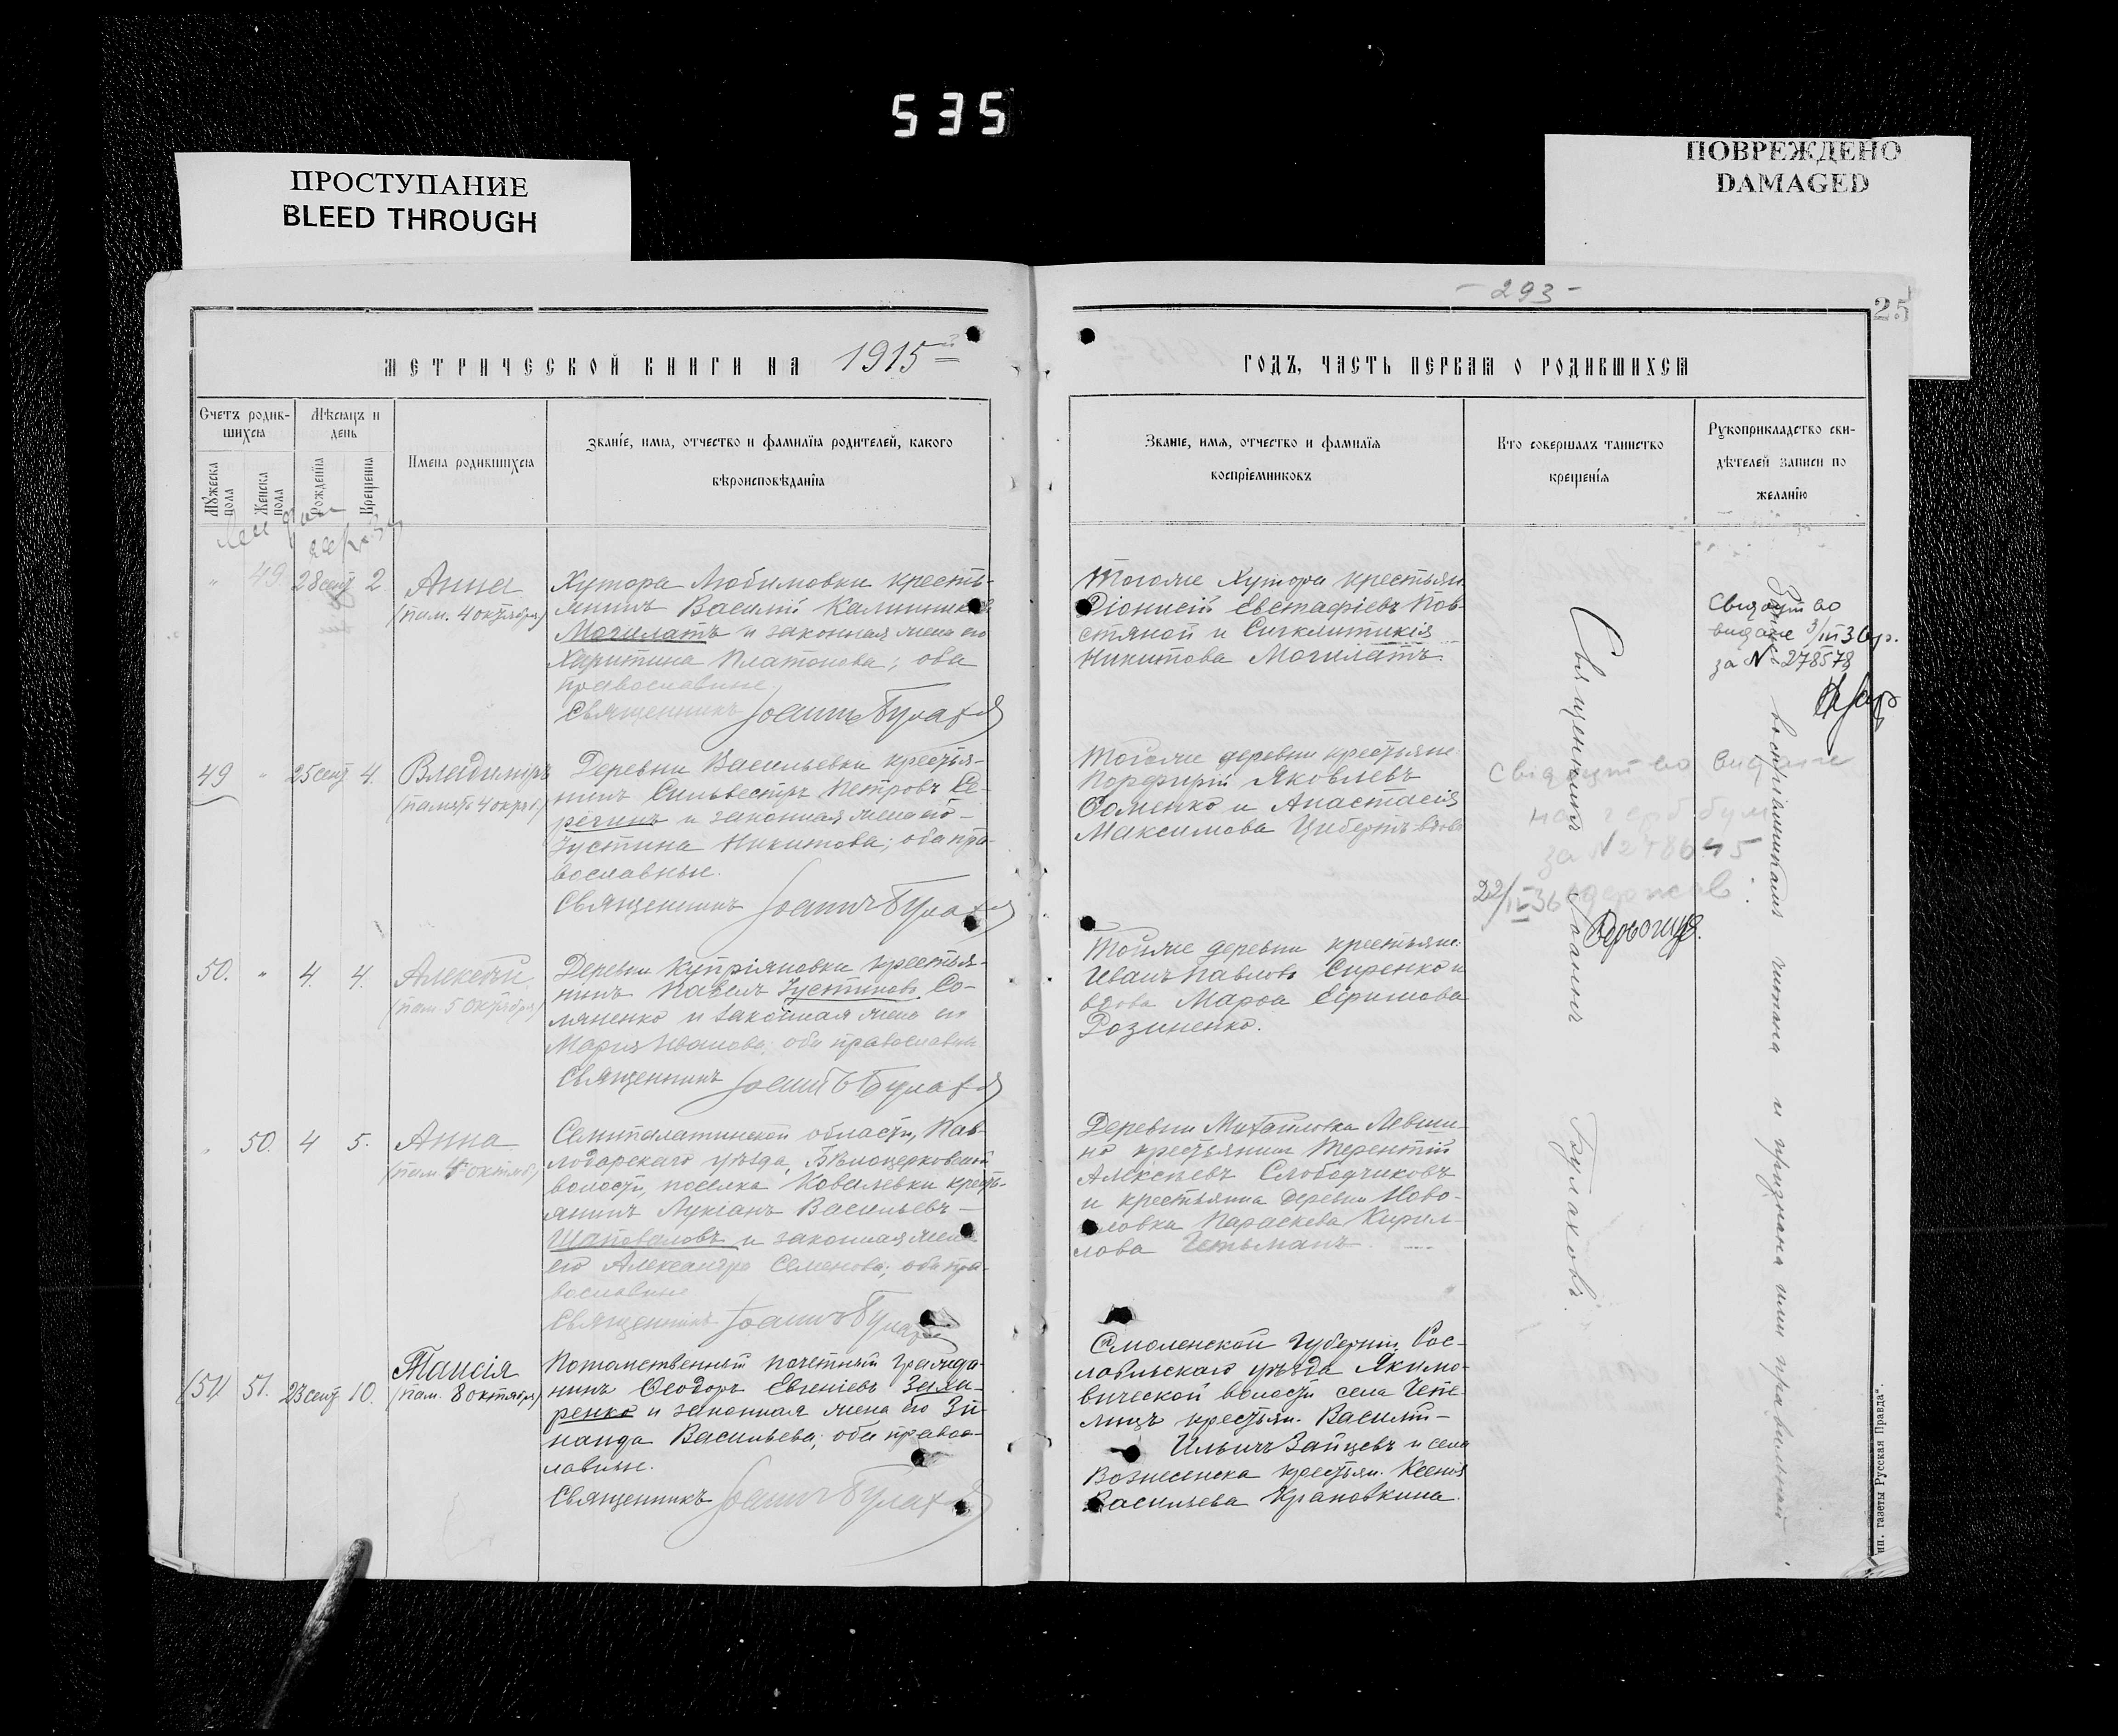 535
ПРОСТУПАНИЕ
BLEED THROUGH
ПОВРЕЖДЕНО
DAMAGED
- 293 -
25
МЕТРИЧЕСКОЙ КНИГИ НА 1915
ГОДЪ, ЧАСТЬ ПЕРВАЯ О РОДИВШИХСЯ
Счетъ родив-
шихся
Мѣсяцъ и
день
Мужеска
пола
Женска
пола
Рожденія
Крещенія
Имена родившихся
Званіе, имя, отчество и фамилія родителей, какого
вѣроисповѣданія
Званіе, имя, отчество и фамилія
воспріемниковъ
Кто совершалъ таинство
крещенія
Рукоприкладство сви-
дѣтелей записи по
желанію
" 49 28 сент 2 Анна
(пам. 4 октября)
Хутора Любимовки кресть-
янинъ Василій
Могилатъ и законная жена его
Харитина Платонова; оба
православные
Священникъ Іоаннъ Булаховъ
Того же Хутора крестьян.
Діонисій Евстафіевъ Пов-
стяной и Синклитикія
Никитова Могилатъ.
Свідоцтво
видане 3/III 36 р.
за № 278578
49 " 25 сент 4. Владиміръ
(память 4 октяб.)
Деревни Васильевки крестья-
нинъ Сильвестръ Петровъ Се-
речинъ и законная жена его -
Іустина Никитова; оба пра-
вославные.
Священникъ Іоаннъ Булаховъ
Той же деревни крестьяне:
Порфирій Яковлевъ
Фоменко и Анастасія
Максимова вдова
Свідоцтво видане
на герб бум
за №
22/IV-36 одержав
50. " 4. 4. Алексѣй
(пам. 5 октября)
Деревни Купріяновки крестья-
нинъ Павелъ Іустиновъ Со-
ляненко и законная жена его
Марія Иванова; оба православные
Священникъ Іоаннъ Булаховъ
Той же деревни крестьяне:
Иванъ Павловъ Сиренко и
вдова Марѳа Ефимова
Розиненко.
" 50. 4 5. Анна
Семипалатинской области, Пав-
лодарскаго уѣзда, Бѣлоцерковской
волости, поселка Ковалевки кресть-
янинъ Лукіанъ Васильевъ -
Шаповаловъ и законная жена
его Александра Семенова; оба пра-
вославные
Священникъ Іоаннъ Булаховъ
Деревни Михайловка Левши-
но крестьянинъ Терентій
Алексѣевъ Слободчиковъ
и крестьянка деревни Ново-
Параскева Кирил-
лова Гетьманъ.
(51) 51. 23 сент 10. Таисія
(пам. 8 октября)
Потомственный почетный гражда-
нинъ Ѳеодоръ Евгеніевъ
ренко и законная жена его Зи-
наида Васильева; оба правос-
лавные.
Священникъ Іоаннъ Булаховъ
Смоленской губерніи, Рос-
лавльскаго уѣзда Якимо-
вической волости села
крестьян. Василій -
Ильичъ Зайцевъ и села
Вознесенска крестьян. Ксенія
Васильева Крановкина.
Священникъ Іоаннъ Булаховъ.
воспріемникамъ читана и признана ими правильной.
ип. газеты „Русская Правда".